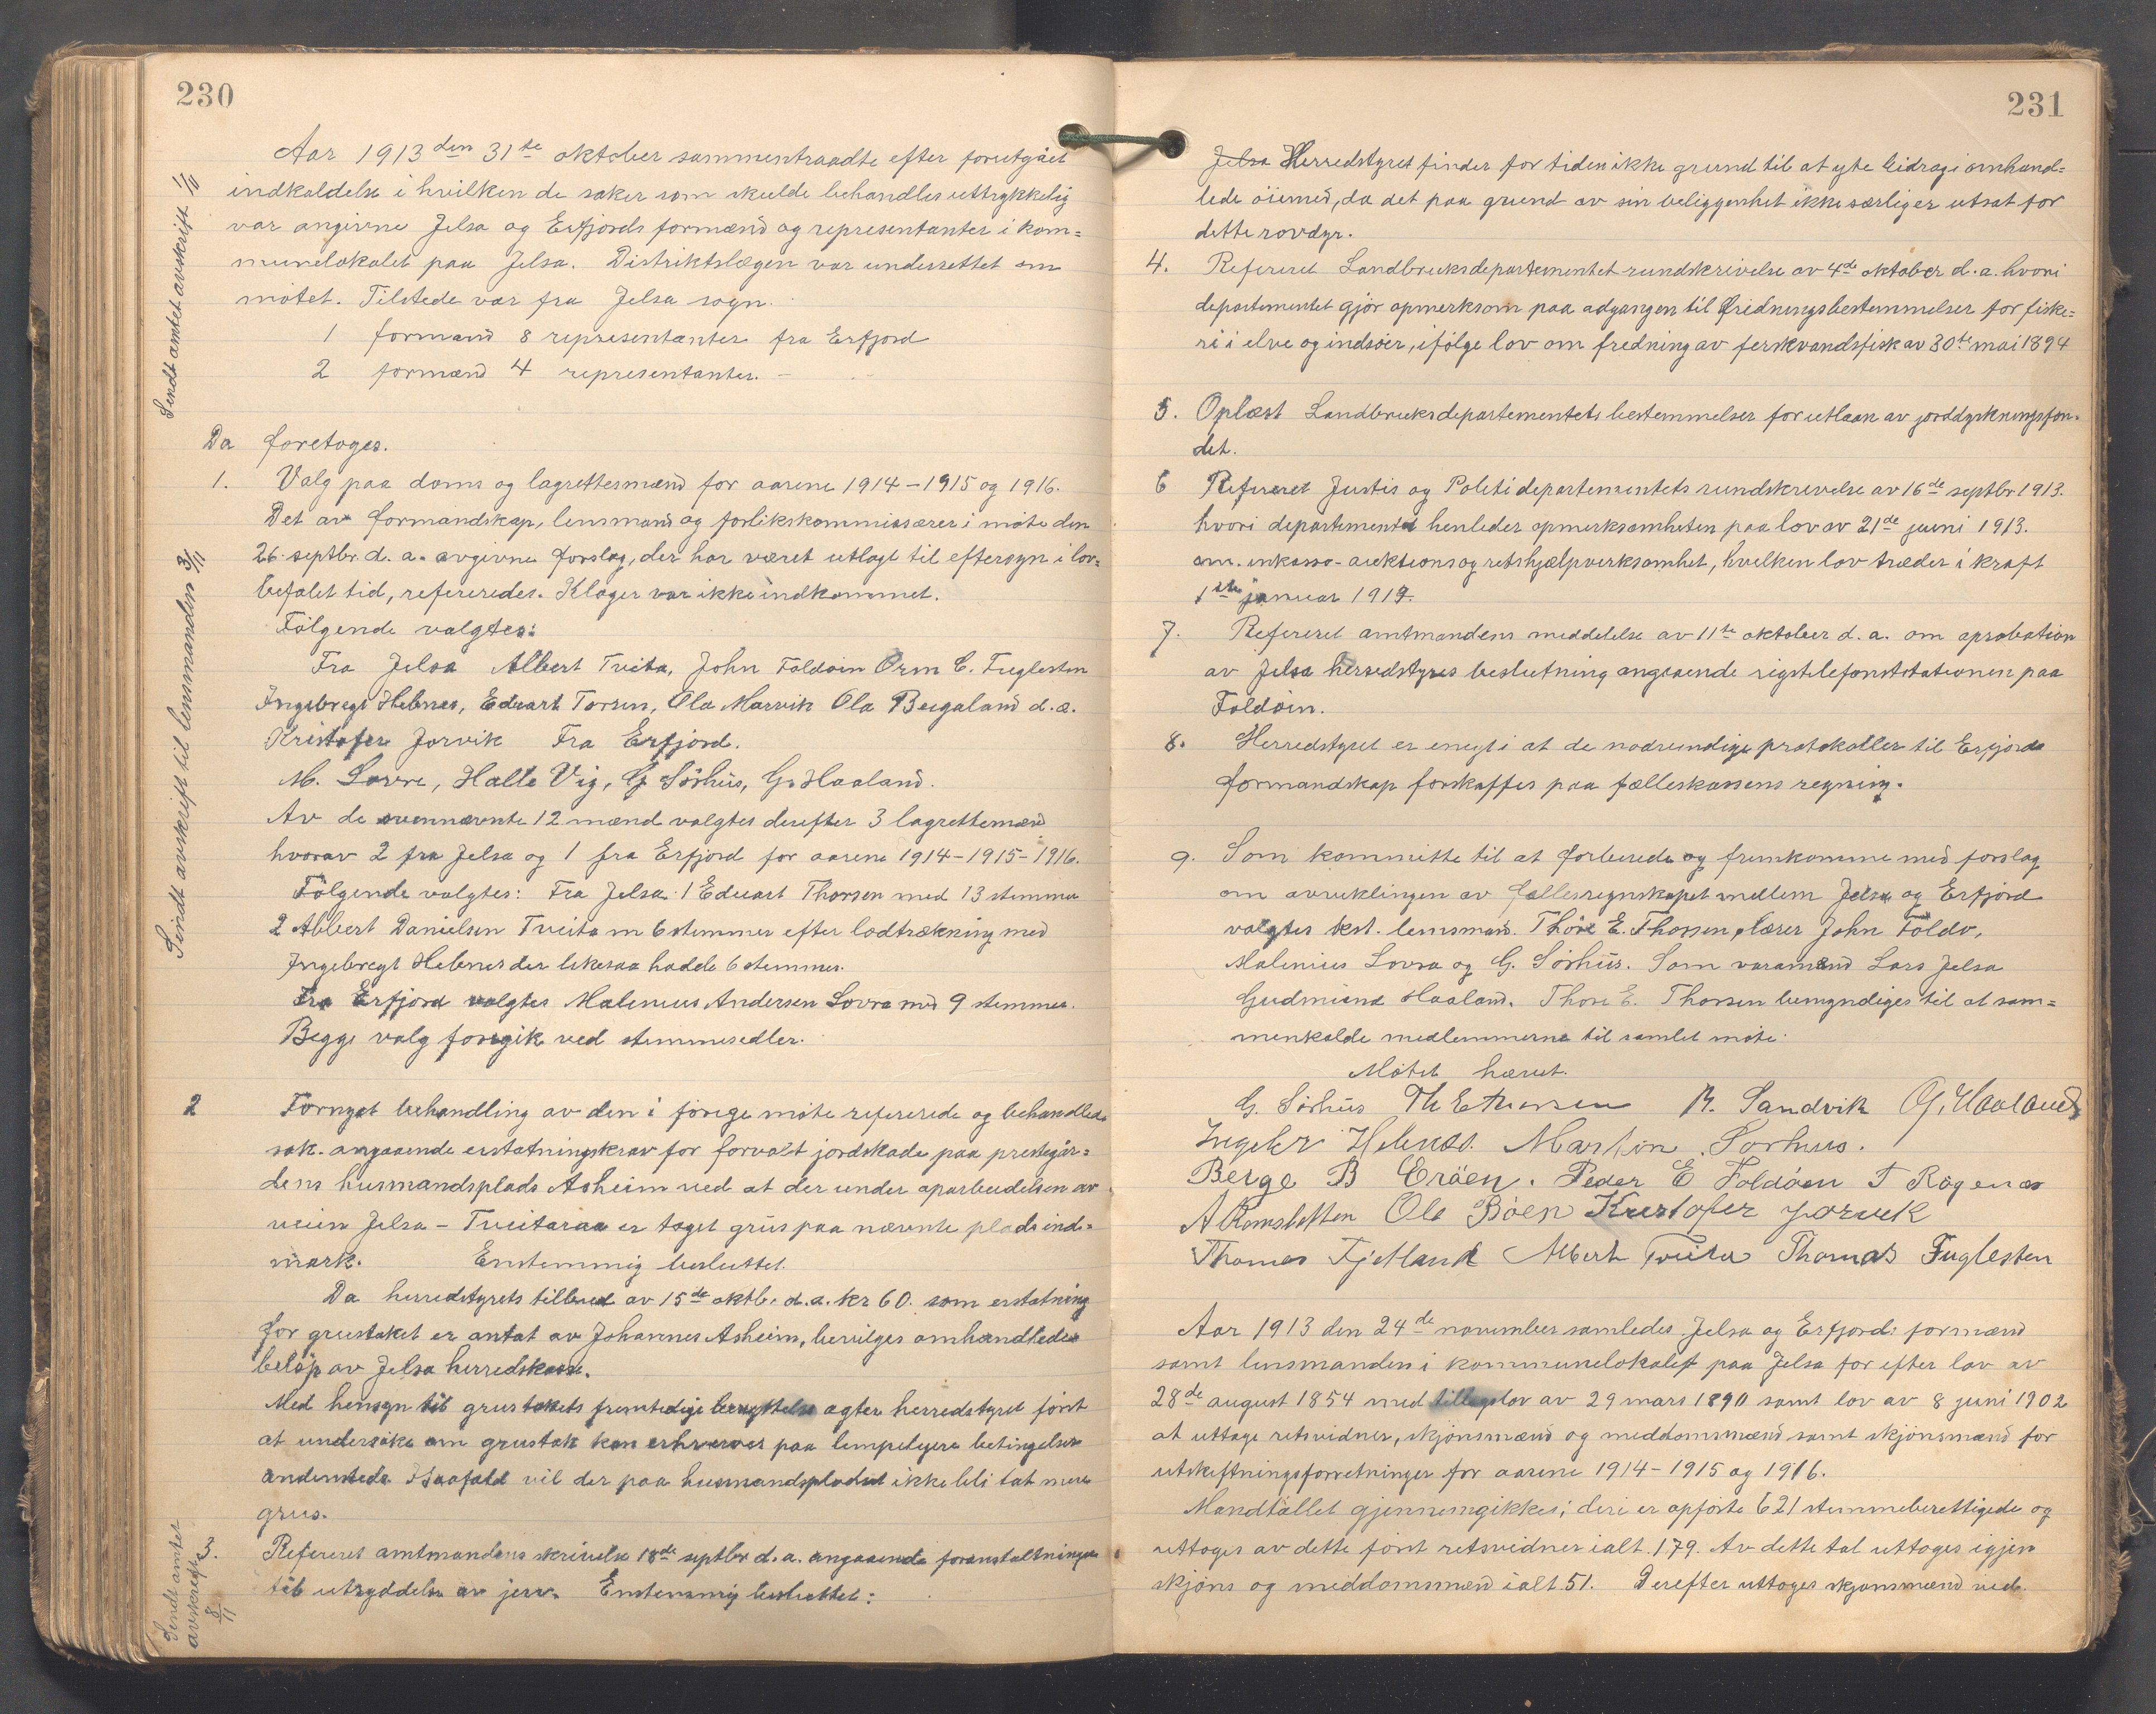 230
Aar 1913 den 31te oktober sammentraadte efter forutgået
indkaldelse i hvilken de saker som skulde behandles uttrykkelig
var angivne Jelsa og Erfjords formænd og representanter i kom=
munelokalet paa Jelsa. Distriktslægen var underrettet om
møtet. Tilstede var fra Jelsa sogn.
1 formand 8 representanter fra Erfjord
2 formænd 4 representanter. -
Sendt amtet avskrift 1/11
Da foretoges.
1. Valg paa doms og lagrettesmænd for aarene 1914-1915 og 1916.
Det av formandskap, lensmand og forlikskommissærer i møte den
26. septbr. d. a. avgivne forslag, der har været utlagt til eftersyn i lov=
befalet tid, refereredes. Klager var ikke indkommet.
Følgende valgtes:
Fra Jelsa Albert Tveita, John Foldøin Orm C. Fuglesten
Ingebregt Helenes, Eduart Torsen, Ola Marvik Ola Bergaland d. æ.
Kristofer Jorvik Fra Erfjord.
M. Lovra, Halle Vig, G Sørhus, G. Haaland.
Av de ovennævnte 12 mænd valgtes derefter 3 lagrettemænd
hvorav 2 fra Jelsa og 1 fra Erfjord for aarene 1914-1915-1916.
Følgende valgtes: Fra Jelsa 1 Eduart Thorsen med 13 stemmer
2 Albert Danielsen Tveita m 6 stemmer efter lodtrækning med
Ingebregt Helenes der likesaa hadde 6 stemmer.
Fra Erfjord valgtes Malenius Andersen Lovra med 9 stemmer.
Begge valg foregik ved stemmesedler.
Sendt avskrift til lensmanden 3/11
2 Fornyet behandling av den i forrige møte refererede og behandlede
sak. angaaende erstatningskrav for forvoldt jordskade paa prestegår=
dens husmandsplads Asheim ved at der under oparbeidelsen av
veien Jelsa - Tveitaraa er taget grus paa nævnte plads ind=
mark. Enstemmig besluttet.
Da herredstyrets tilbud av 15de oktb. d. a. kr 60. som erstatning
for grustaket er antat av Johannes Asheim, bevilges omhandlede
beløp av Jelsa herredskasse.
Med hensyn til grustakets fremtidige benyttelse agter herredstyret først
at undersøke om grustak kan erhverves paa lempeligere betingelser
andensteds Isaafald vil der paa husmandspladsen ikke bli tat mere
grus.
3. Refereret amtmandens skrivelse 18de septbr d. a. angaaende foranstaltninger
til utryddelse av jerv. Enstemmig besluttet:
Sendt amtet
avskrift
8/11
231
Jelsa Herredstyret finder for tiden ikke grund til at yte bidrag i omhand=
lede øiemed, da det paa grund av sin beliggenhet ikke særlig er utsat for
dette rovdyr.
4. Refereret Landbruksdepartementet rundskrivelse av 4de oktober d. a. hvori
departementet gjør opmerksom paa adgangen til fredningsbestemmelser for fiske=
ri i elve og indsøer, ifølge lov om fredning av ferskvandsfisk av 30te mai 1894
5. Oplæst Landbruksdepartementets bestemmelser for utlaan av jorddyrkningsfon-
det.
6 Refereret Justis og Politidepartementets rundskrivelse av 16de septbr 1913.
hvori departementet henleder opmerksomheten paa lov av 21de juni 1913.
om. inkasso- auktions og retshjælpvirksomhet, hvilken lov træder i kraft
1ste januar 1914.
7. Refereret amtmandens meddelelse av 11te oktober d. a. om aprobation
av Jelsa herredstyres beslutning angaaende rigstelefonstationen paa
Foldøin.
8. Herredstyret er enig i at de nødvendige protokoller til Erfjords
formandskap forskaffes paa fælleskassens regning.
9. Som kommitte til at forberede og fremkomme med forslag
om avviklingen av fællesregnskapet mellem Jelsa og Erfjord
valgtes kst. lensmand. Thore E. Thorsen, lærer John Foldø,
Malenius Lovra og G. Sørhus. Som varamænd Lars Jelsa
Gudmund Haaland. Thore E. Thorsen bemyndiges til at sam=
menkalde medlemmerne til samlet møte.
Møtet hævet.
G. Sørhus Th E Thorsen B. Sandvik G. Haaland
Ingebr Helenes. Martin Sørhus.
Berge B Erøen. Peder E Foldøen T Rogenes
A Ramsletten Ole Bøen Kristofer Jorvik
Thomas Fjetland Albert Tveita Thomas Fuglesten
Aar 1913 den 24de november samledes Jelsa og Erfjords formænd
samt lensmanden i kommunelokalet paa Jelsa for efter lov av
28de august 1854 med tillægslov av 29 mars 1890 samt lov av 8 juni 1902
at uttage retsvidner, skjønsmænd og meddomsmænd samt skjønsmænd for
utskiftningsforretninger for aarene 1914-1915 og 1916.
Mandtallet gjennemgikkes; deri er opførte 621 stemmeberettigede og
uttoges av dette først retsvidner ialt 179. Av dette tal uttoges igjen
skjøns og meddomsmænd ialt 51. Derefter uttoges skjønsmænd ved